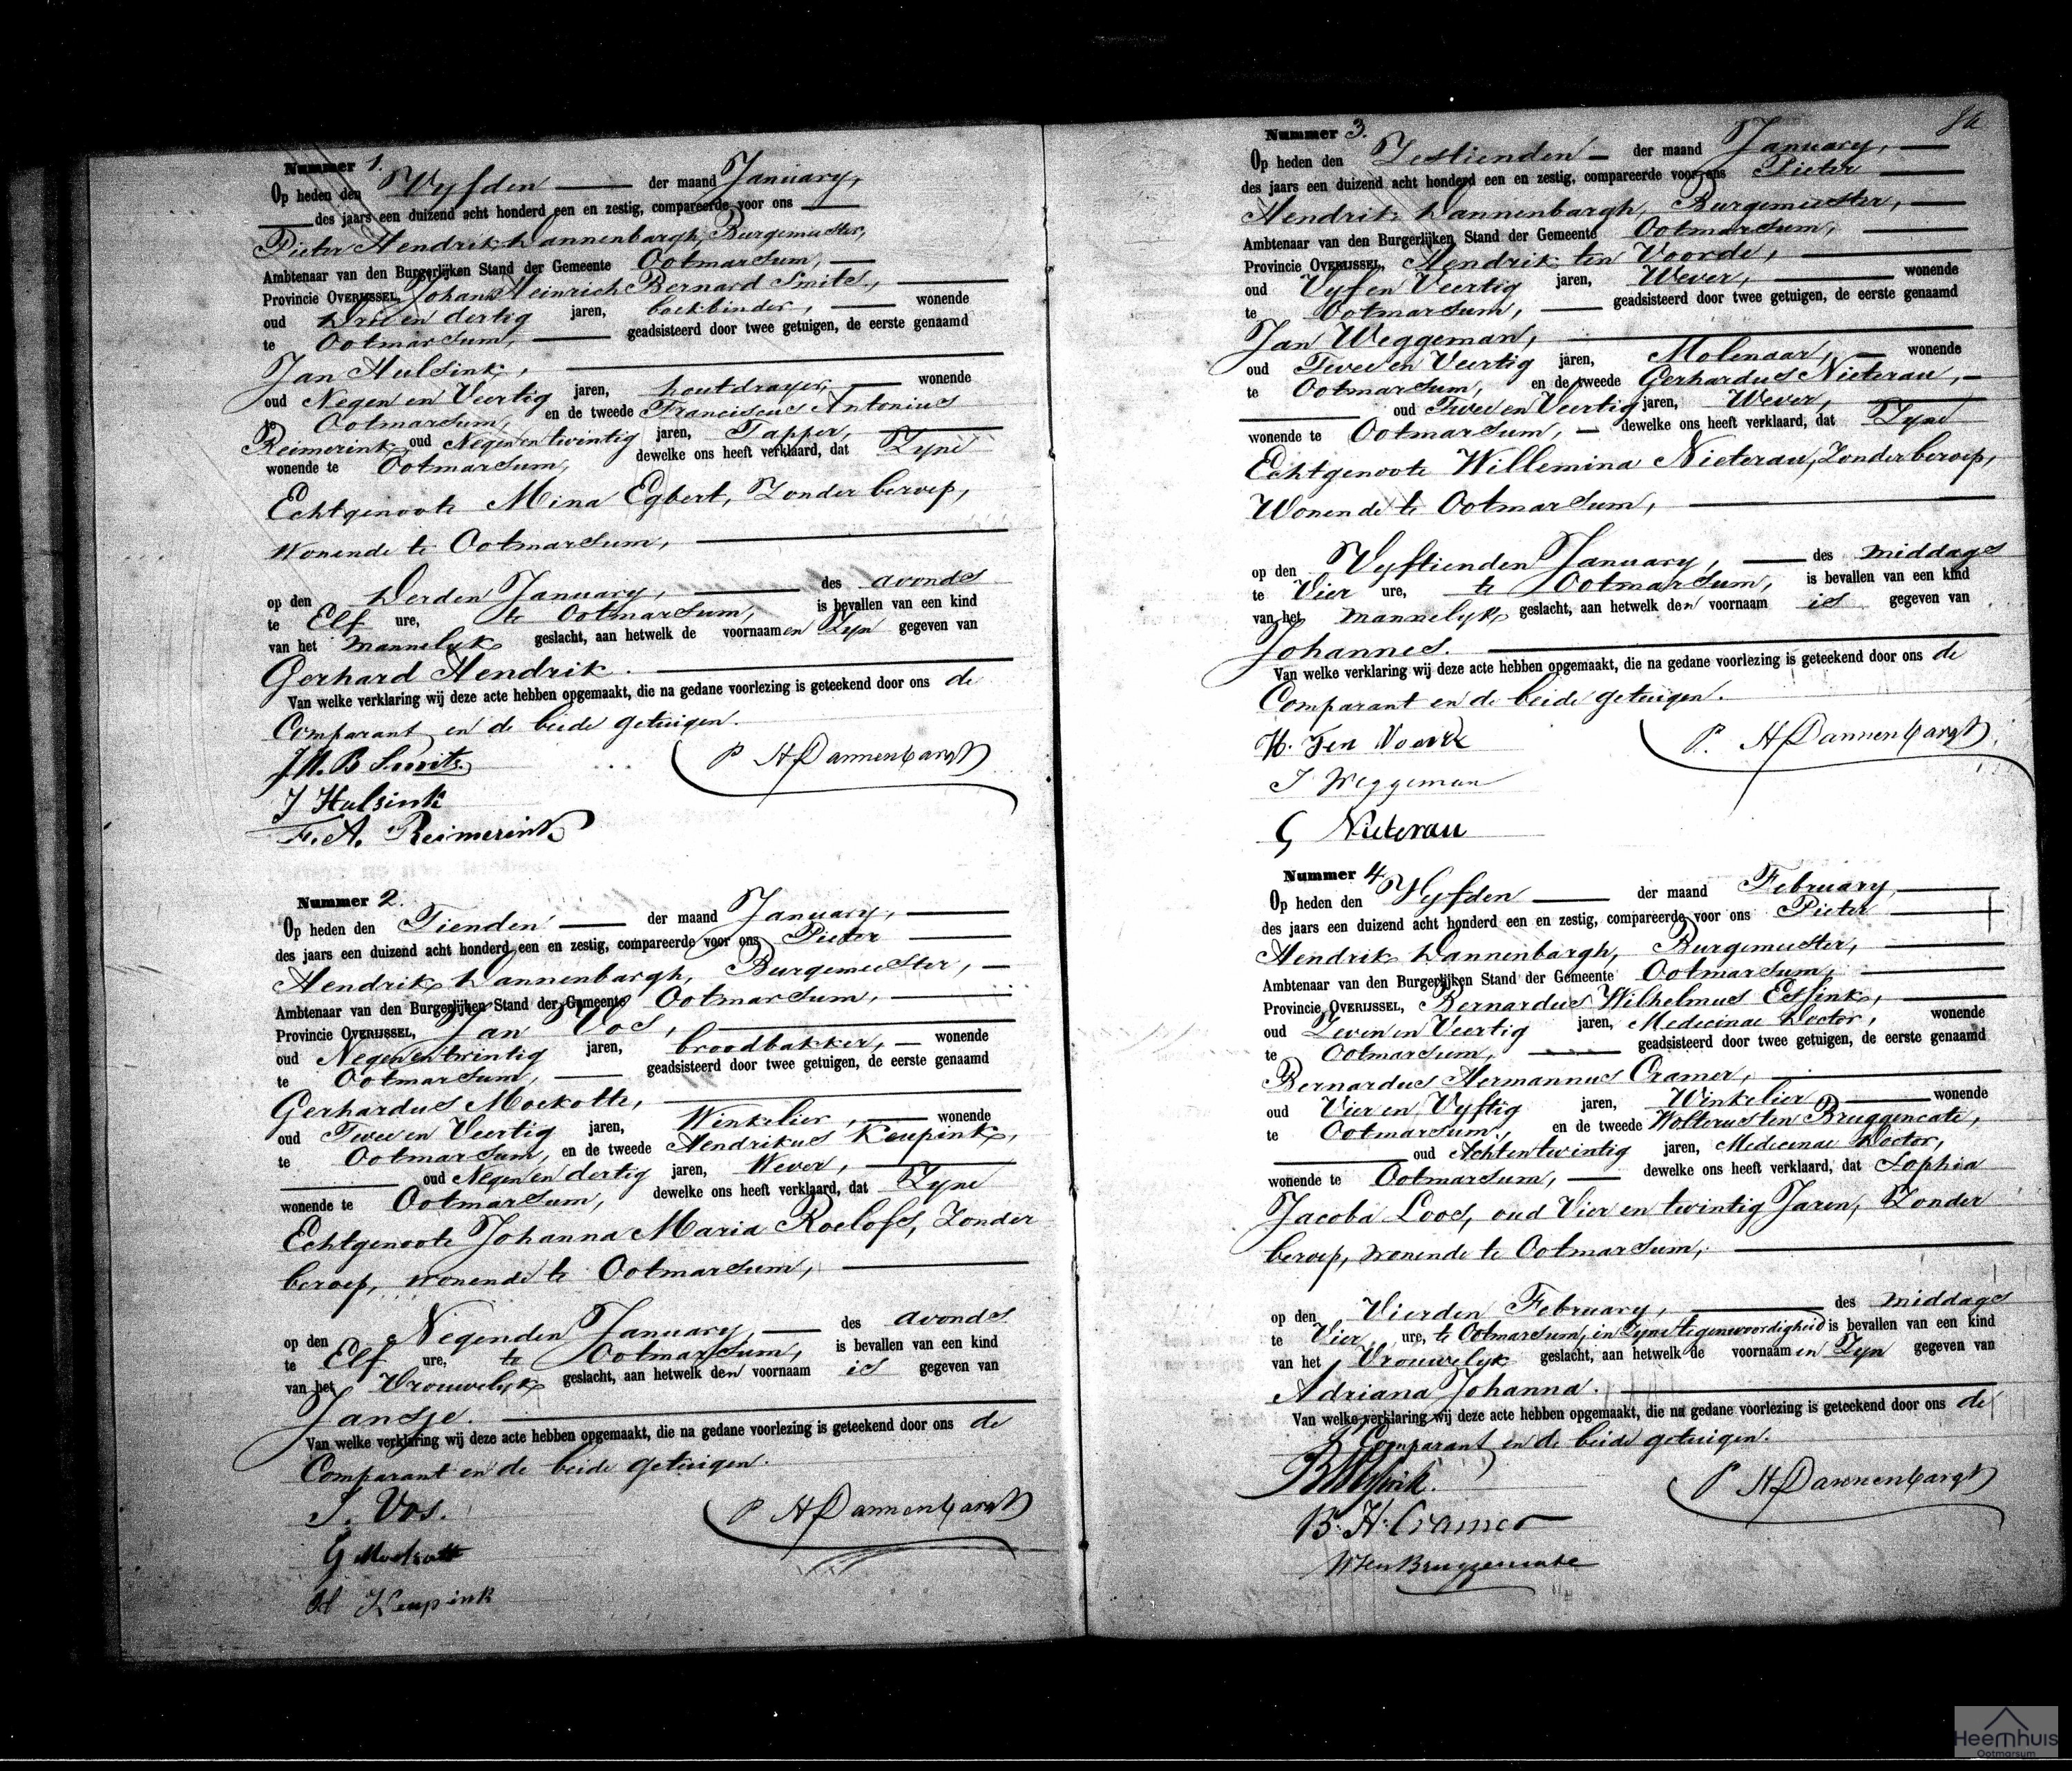 Nummer 1.
Op heden den Vyfden der maand January,
des jaars een duizend acht honderd een en zestig, compareerde voor ons
Pieter Hendrik Dannenbargh, Burgemeester,
Ambtenaar van den Burgerlijken Stand der Gemeente Ootmarsum,
Provincie OVERIJSSEL, Johann Heinrich Bernard Smits,
oud Drie en dertig jaren, boekbinder, wonende
te Ootmarsum, geadsisteerd door twee getuigen, de eerste genaamd
Jan Hulsink,
oud Negen en Veertig jaren, houtdrayer, wonende
te Ootmarsum, en de tweede Franciscus Antonius
Reimerink oud Negen en twintig jaren, Tapper,
wonende te Ootmarsum, dewelke ons heeft verklaard, dat Zyne
Echtgenoote Mina Egbert, Zonder beroep,
Wonende te Ootmarsum,
op den Derden January, des avonds
te Elf ure, te Ootmarsum, is bevallen van een kind
van het mannelyk geslacht, aan hetwelk de voornaamen Zyn gegeven van
Gerhard Hendrik.
Van welke verklaring wij deze acte hebben opgemaakt, die na gedane voorlezing is geteekend door ons de
Comparant en de beide getuigen.
J. H. B Smits. P H Dannenbargh
J Hulsink
F. A. Reimerink
Nummer 2.
Op heden den Tienden der maand January,
des jaars een duizend acht honderd een en zestig, compareerde voor ons Pieter
Hendrik Dannenbargh, Burgemeester,
Ambtenaar van den Burgerlijken Stand der Gemeente Ootmarsum,
Provincie OVERIJSSEL, Jan Vos,
oud Negen en twintig jaren, broodbakker, wonende
te Ootmarsum, geadsisteerd door twee getuigen, de eerste genaamd
Gerhardus Moekotte,
oud Twee en Veertig jaren, Winkelier, wonende
te Ootmarsum, en de tweede Hendrikus Keupink,
oud Negen en dertig jaren, Wever,
wonende te Ootmarsum, dewelke ons heeft verklaard, dat Zyne
Echtgenoote Johanna Maria Roelofs, Zonder
beroep, wonende te Ootmarsum,
op den Negenden January, des avonds
te Elf ure, te Ootmarsum, is bevallen van een kind
van het Vrouwelyk geslacht, aan hetwelk den voornaam is gegeven van
Jansje.
Van welke verklaring wij deze acte hebben opgemaakt, die na gedane voorlezing is geteekend door ons de
Comparant en de beide getuigen.
J. Vos. P H Dannenbargh
G Moekotte
H Keupink
Nummer 3.
Op heden den Zestienden der maand January,
des jaars een duizend acht honderd een en zestig, compareerde voor ons Pieter
Hendrik Dannenbargh, Burgemeester,
Ambtenaar van den Burgerlijken Stand der Gemeente Ootmarsum,
Provincie OVERIJSSEL, Hendrik ten Voorde,
oud Vyf en Veertig jaren, Wever, wonende
te Ootmarsum, geadsisteerd door twee getuigen, de eerste genaamd
Jan Weggeman,
oud Twee en Veertig jaren, Molenaar, wonende
te Ootmarsum, en de tweede Gerhardus Nieterau,
oud Twee en Veertig jaren, Wever,
wonende te Ootmarsum, dewelke ons heeft verklaard, dat Zyne
Echtgenoote Willemina Nieterau, Zonder beroep,
Wonende te Ootmarsum,
op den Vyftienden January, des middags
te Vier ure, te Ootmarsum, is bevallen van een kind
van het mannelyk geslacht, aan hetwelk den voornaam is gegeven van
Johannes.
Van welke verklaring wij deze acte hebben opgemaakt, die na gedane voorlezing is geteekend door ons de
Comparant en de beide getuigen.
H. Ten Voorde P. H Dannenbargh
J Weggeman
G Nieterau
Nummer 4
Op heden den Vyfden der maand February,
des jaars een duizend acht honderd een en zestig, compareerde voor ons Pieter
Hendrik Dannenbargh, Burgemeester,
Ambtenaar van den Burgerlijken Stand der Gemeente Ootmarsum,
Provincie OVERIJSSEL, Bernardus Wilhelmus Essink,
oud Zeven en Veertig jaren, Medecinae Doctor, wonende
te Ootmarsum, geadsisteerd door twee getuigen, de eerste genaamd
Bernardus Hermannus Cramer,
oud Vier en Vyftig jaren, Winkelier wonende
te Ootmarsum, en de tweede Wolterus ten Bruggencate,
oud Achtentwintig jaren, Medecinae Doctor,
wonende te Ootmarsum, dewelke ons heeft verklaard, dat Sophia
Jacoba Loos, oud Vier en twintig Jaren, Zonder
beroep, wonende te Ootmarsum,
op den Vierden February, des middags
te Vier ure, te Ootmarsum, in Zyne tegenwoordigheid is bevallen van een kind
van het Vrouwelyk geslacht, aan hetwelk de voornaamen Zyn gegeven van
Adriana Johanna.
Van welke verklaring wij deze acte hebben opgemaakt, die na gedane voorlezing is geteekend door ons de
Comparant en de beide getuigen.
P H Dannenbargh
B. H. Cramer
W ten Bruggencate
Heemhuis
Ootmarsum